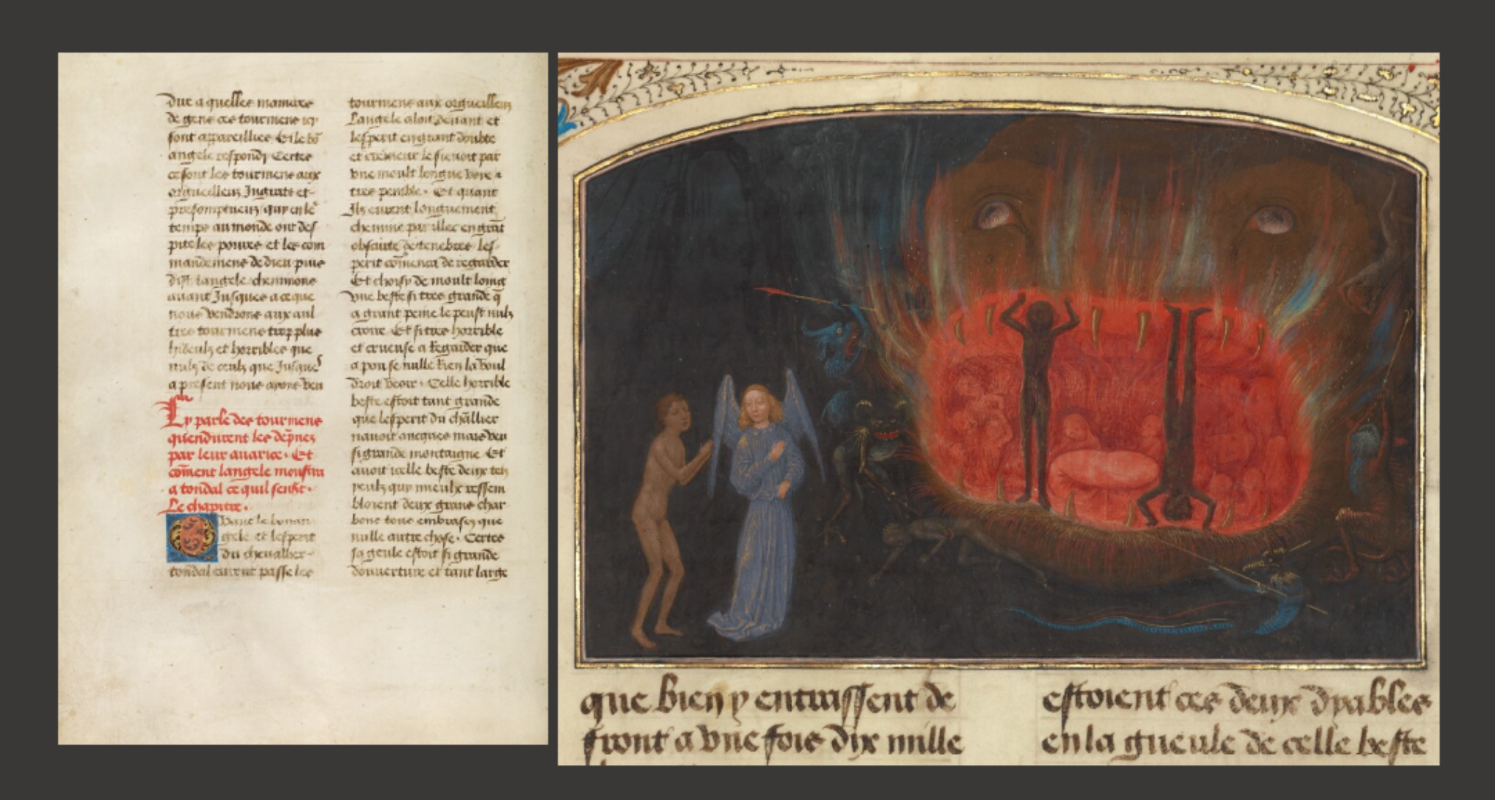 dire a quelles manieres
de gens ces tourmens icy
sont appareillies Et le bō
angele respondy Certes
ce sont les tourmens aux
orguelleux Ingrats et
presompcieux quy en le
temps au monde ont des
pite les poures et les com
mandemens de dieu puis
dist langele cheminons
auant Jusques a ce que
nous vendrons aux aul
tres tourmens trop plus
hideulx et horribles que
nulz de ceulx que Jusques
a present nous ayons veu
Cy parle des tourmens
quendurent les dāpnez
par leur auarice. Et
cōment langele monstra
a tondal ce quil senst.
Le chapitre.
Quant le bon an
gele et lesperit
du cheuallier
tondal eurent passe les
tourmens aux orgueilleux
Langele aloit deuant et
lesperit en grant doubte
et cremeur le sieuoit par
vne moult longue voye
tres penible. Et quant
Ilz eurent longuement
chemine par illec en grāt
obscurte de tenebres les
perit cōmenca de regarder
Et choisy de moult loing
vne beste si tres grande q̄
a grant peine le peust nulz
croire. Et si tres horrible
et crueuse a Regarder que
a pou se nulle Rien la voul
droit veoir. Celle horrible
beste estoit tant grande
que lesperit du chl̄lier
nauoit oncques mais veu
si grande montaigne. Et
auoit icelle beste deux telz
yeulx quy mieulx ressem
bloient deux grans char
bons tous embrases que
nulle autre chose. Certes
sa geule estoit si grande
douuerture et tant large
que bien y entraissent de
front a vne fois dix mille
estoient ces deux dyables
en la gueule de celle beste